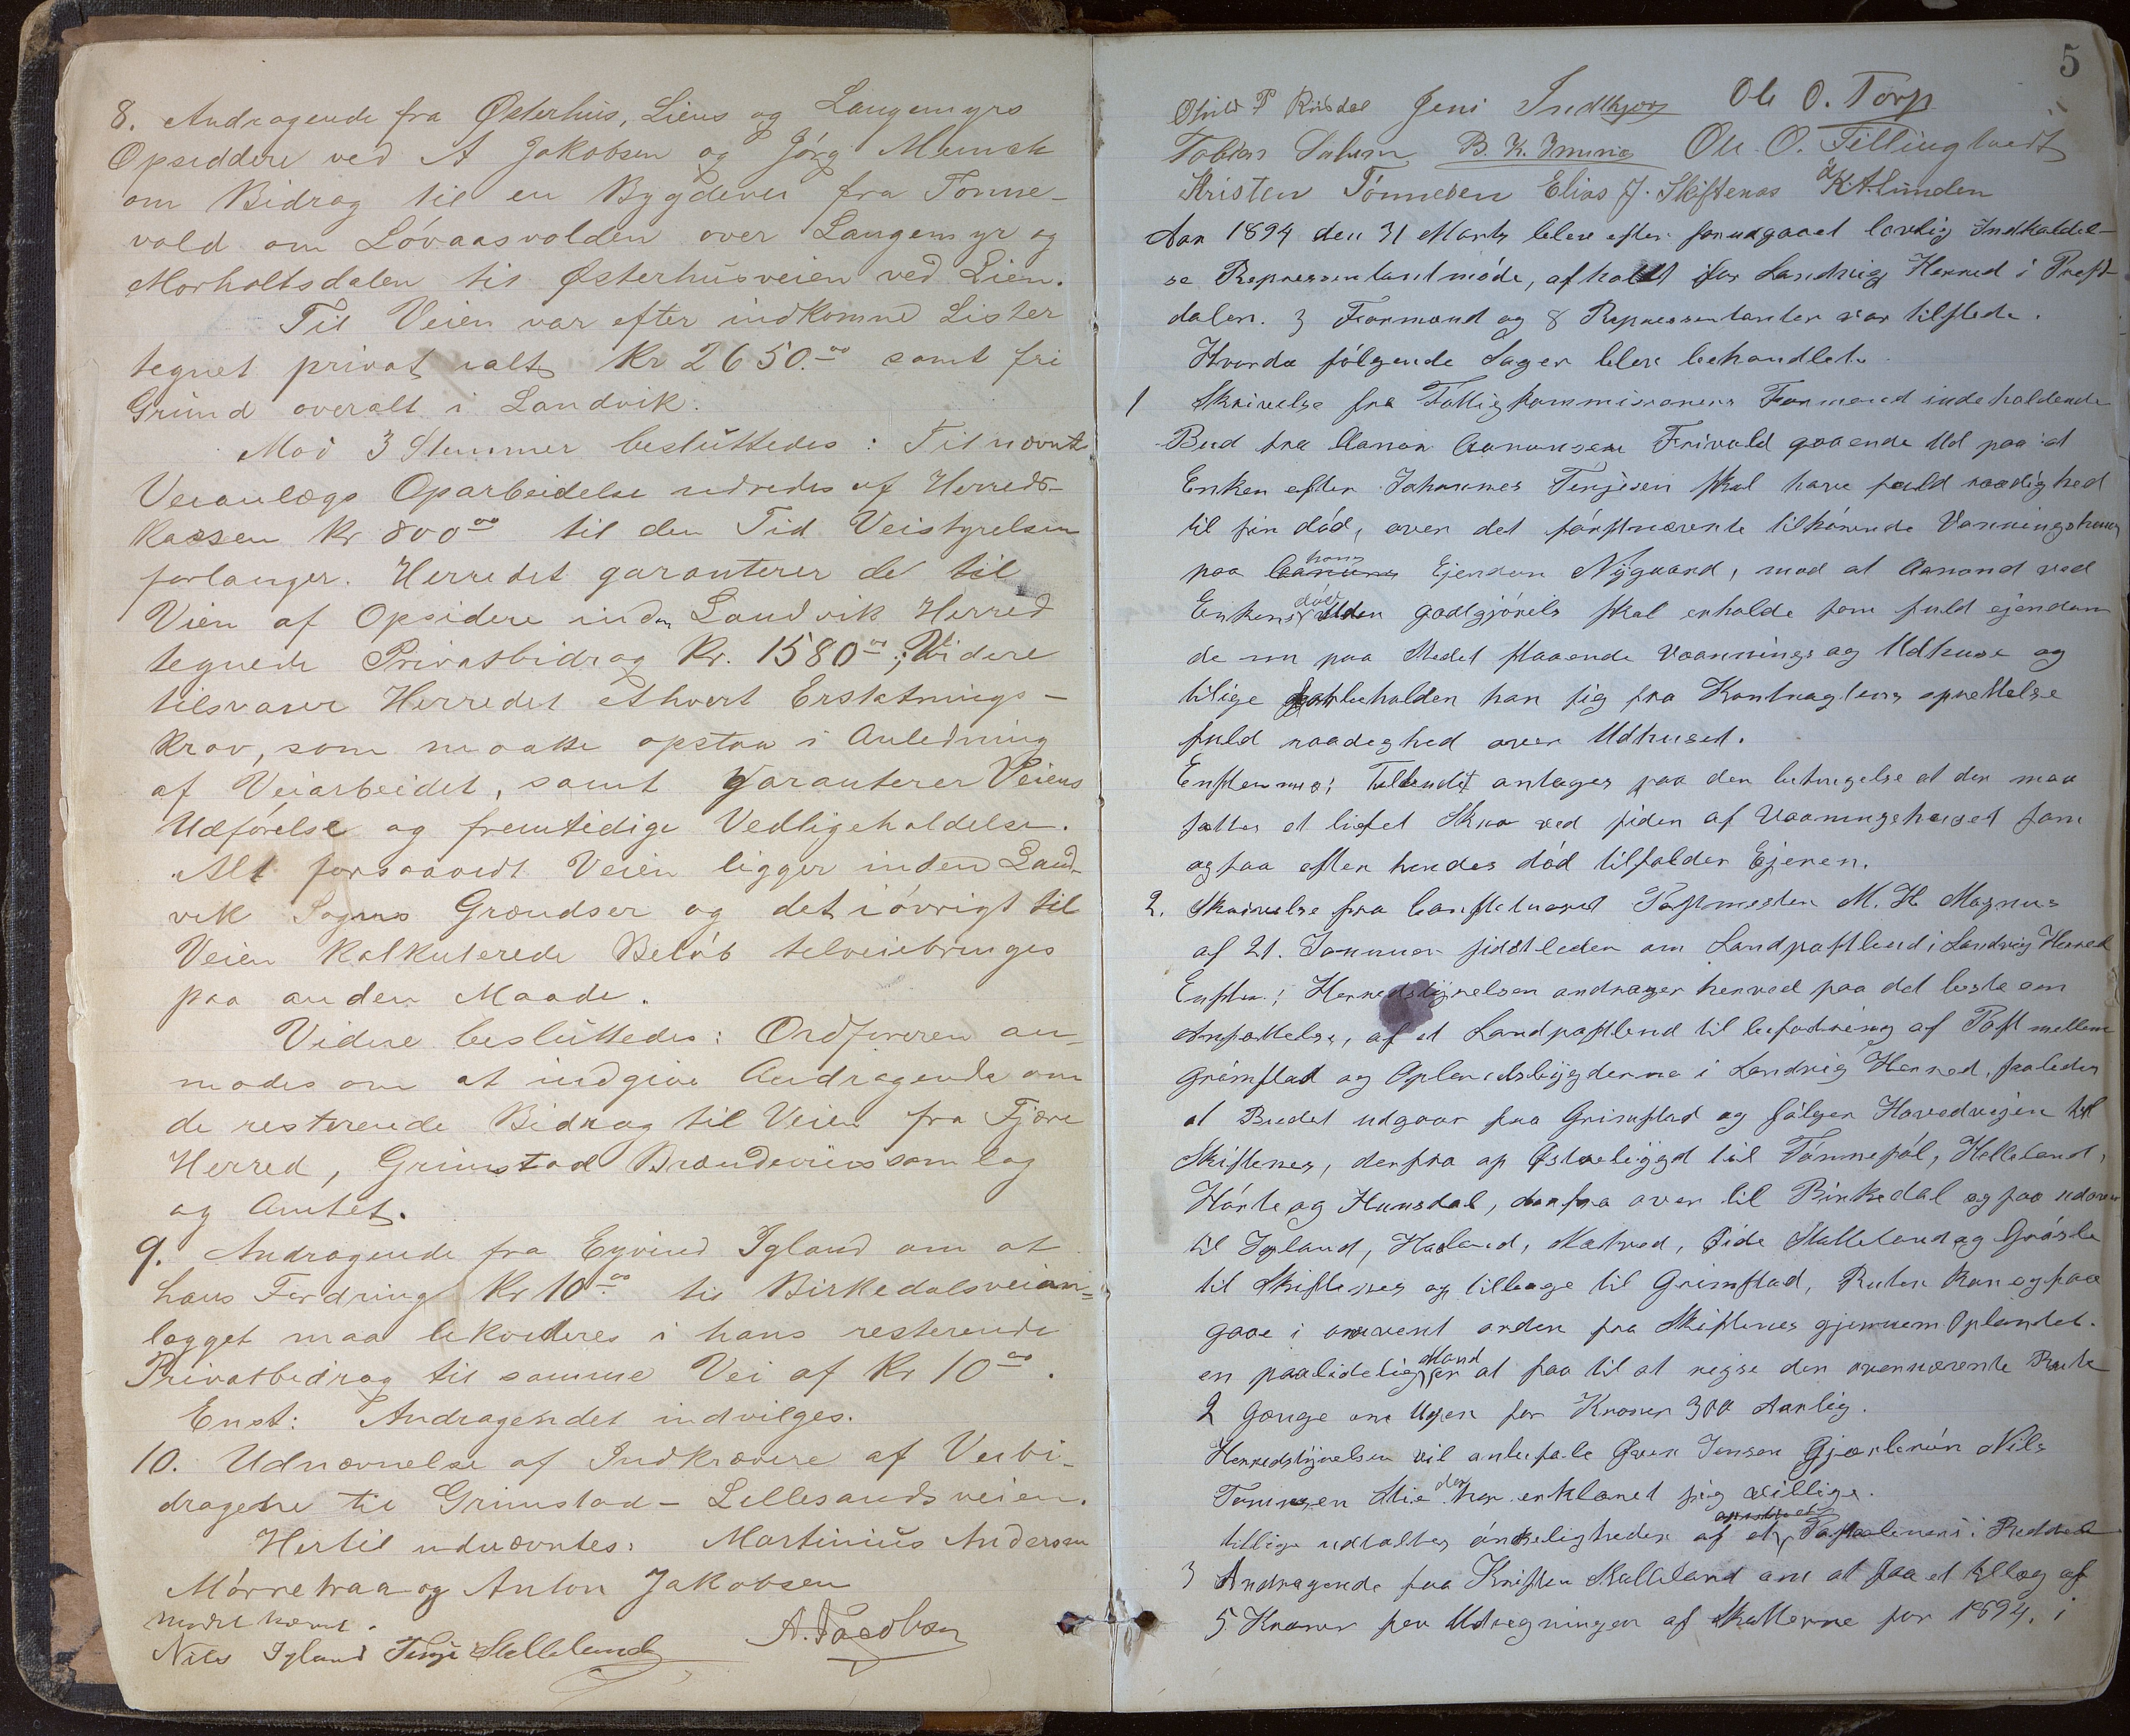 8. Andragende fra Østerhus, Liens og Langemyrs
Opsiddere ved A Jakobsen og Jörg Munch
om Bidrag til en Bygdevei fra Tonne-
vold om Lövaasvolden over Langemyr og
Morholtsdalen til Østerhusveien ved Lien.
Til Veien var efter indkomne Lister
tegnet privat ialt Kr 2650.00 samt fri
Grund overalt i Landvik.
Mod 3 Stemmer besluttedes: Til nævnte
Veianlægs Oparbeidelse udredes af Herreds-
kassen Kr 800 00 til den Tid Veistyrelsen
forlanger. Herredet garanterer de til
Vien af Opsidere inden Landvik Herred
tegnede Privatbidrag Kr. 1580 00; Videre
tilsvarer Herredet ethvert Erstatnings-
krav, som maatte opstaa i Anledning
af Veiarbeidet, samt garanterer Veiens
Udförelse og fremtidige Vedligeholdelse.
Alt forsaavidt Veien ligger inden Land-
vik Sogns Grændser og det iövrigt til
Veien kalkulerede Belöb tilveiebringes
paa anden Maade.
Videre besluttedes: Ordföreren an-
modes om at indgive Andragende om
de resterende Bidrag til Veien fra Fjære
Herred, Grimstad Brændevinssamlag
og Amtet.
9. Andragende fra Eyvind Igland om at
hans Fordring Kr 10 00 til Birkedalsveian-
lægget maa likvideres i hans resterende
Privatbidrag til samme Vei af Kr 10 00.
Enst: Andragendet indvilges.
10. Udnævnelse af Indkrævere af Veibi-
dragene til Grimstad-Lillesandsveien.
Hertil udnævntes: Martinius Andersen
Mörretraa og Anton Jakobsen
Nils Igland Terje Stalleland A. Jacobsen
5
P Risdal Jens Indkjørg Ole O. Torp
Tobias B. K. Ole O. Fillingtvedt
Kristen Tönnesen Elias J. Skiftenes K A Lunden
Aar 1894 den 31 Marts blev efter forudgaaet lovlig Indkaldel-
se Repræsentantmöde, afholdt for Landvig Herred i Præst-
dalen. 3 Formænd og 8 Repræsentanter var tilstede.
Hvorda fölgende Sager blev behandlet.
1 Skrivelse fra Fattigkommissionens Formand indeholdende
Bud fra Aanon Aanonsen Frivold gaaende Ud paa at
Enken efter Johannes Terjesen skal have fuld raadighed
til sin död, over det förstnævnte tilhörende Vaaningshuus
paa hans Ejendom Nygaard, mod at Aanond ved
Enkens död uden godtgjörels skal erholde som fuld ejendom
de nu paa Stedet staaende Vaanings og Udhuse og
tilige forbeholder han sig fra Kontragtens oprettelse
fuld raadighed over Udhuset.
Enstemmig: Tilbudet antages paa den betingelse at der maa
sættes et lidet Skur ved siden af Vaaningshuset som
ogsaa efter hendes död tilfalder Ejeren.
2. Skrivelse fra Constitueret Postmester M. H. Magnus
af 21. Januar sidstleden om Landpostbud i Landvig Herred
Enstem.: Herredstyrelsen andrager herved paa det beste om
Ansættelse, af et Landpostbud til befordring af Post mellem
Grimstad og Oplandsbygderne i Landvig Herred, saaledes
at Budet udgaar fra Grimstad og fölger Hovedvejen til
Skiftenes, derfra op Østrebygd til Tönnesöl, Helleland,
Hörte og Hunsdal, derfra over til Birkedal og saa udover
til Igland, Hasland, Skatved, Eide Stalleland og Gröste
til Skiftenes og tilbage til Grimstad, Ruten kan ogsaa
gaae i omvent orden fra Skiftenes gjennem Oplandet.
en paalidelig Mand er at faa til at rejse den ovennævnte Rute
2 Gange om Ugen for Kroner 300 Aarlig.
Herredstyrelsen vil anbefale Jensen Nils
der har erklæret sig villige.
tillige udtaltes önskeligheden af et i Reddal
3 Andragende fra Kristen Stalleland om at faa et tillæg af
5 Kroner for Udregningen af Skatterne for 1894. i